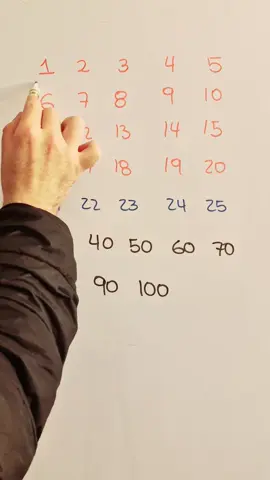 1 2 3 4 5
6 7 8 9 10
2 13 14 15
18 19 20
22 23 24 25
40 50 60 70
90 100